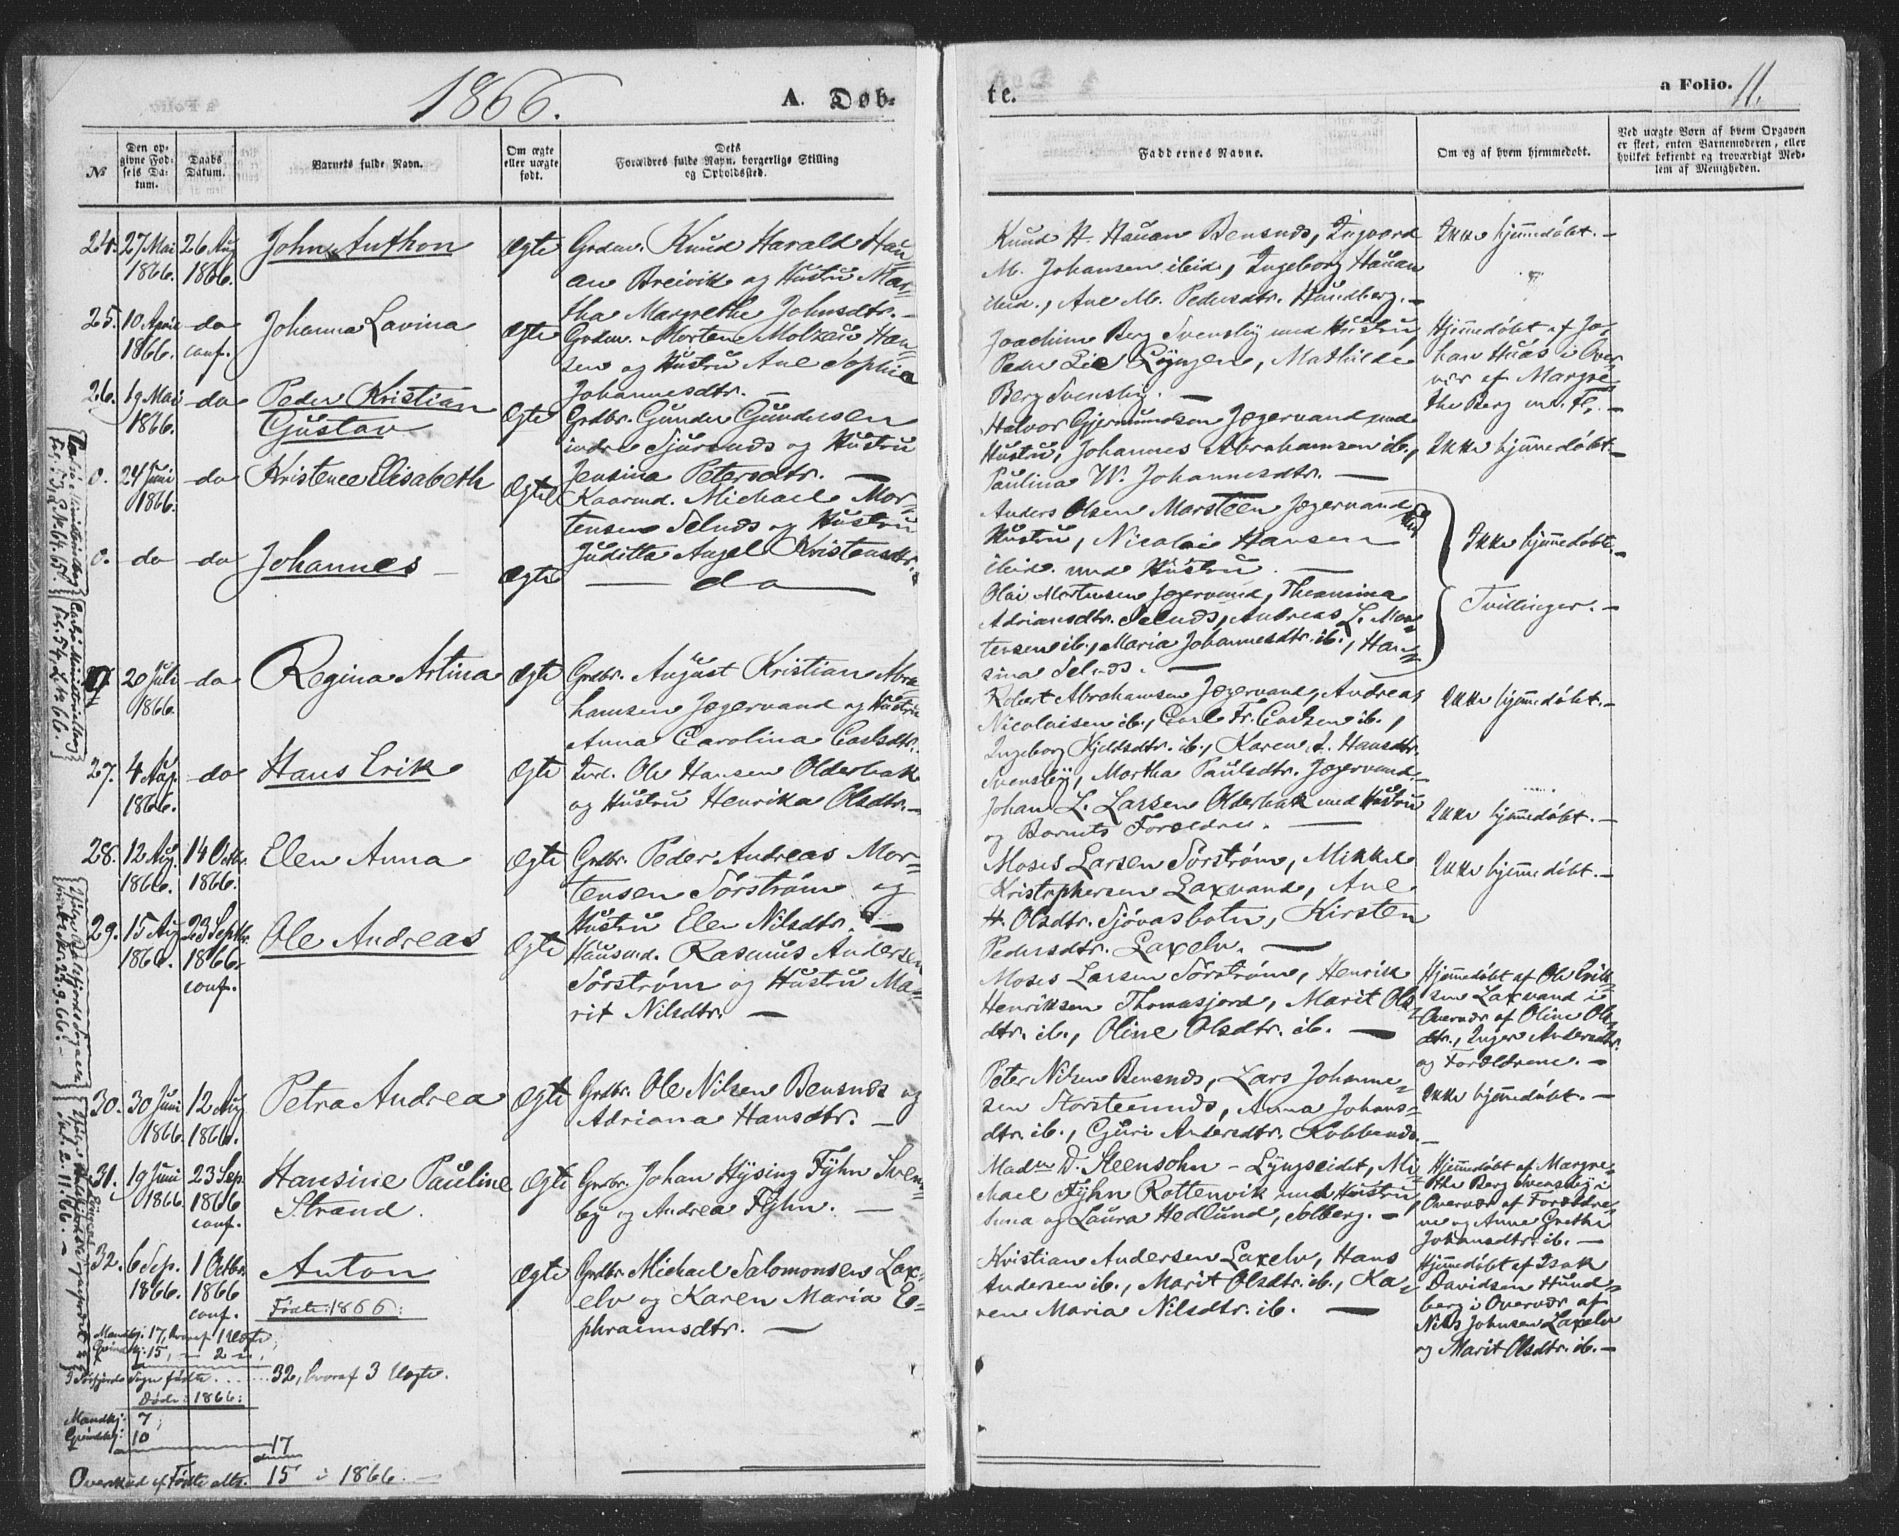 1866.
A. Døb-
te.
a Folio. 11.
№
Den op-
givne Fød-
sels Da-
tum.
Daabs
Datum.
Barnets fulde Navn.
Om ægte
eller uægte
født.
Dets
Forældres fulde Navn, borgerlige Stilling
og Opholdssted.
Faddernes Navne.
Om og af hvem hjemmedøbt.
Ved uægte Børn af hvem Opgaven
er skeet, enten Barnemoderen, eller
hvilket bekjendt og troværdigt Med-
lem af Menigheden.
24. 27 Mai 1866. 26 Aug 1866. John Anthon Ægte
Grdm. Knud Harald Hau-
an Breivik og Hustru Mar-
tha Margrethe Johnsdtr. -
Knud H. Hauan Bensnæs, Ingvard
M. Johansen ibid, Ingeborg Hauan
ibid., Ane M. Pedersdtr. Hundberg. -
Ikke hjemmedøbt. -
25. 10 April 1866. do conf. Johanna Lavina Ægte
Grdm. Morten Molzau Han-
sen og Hustru Ane Sophia
Johannesdtr. -
Joachim Berg Svensby med Hustru,
Peder Lyngen, Mathilde
Berg Svensby. -
Hjemmedøbt af Jo-
han Huas i Over-
vær af Margre-
the Berg m. fl. -
26. 19 Mai 1866. do Peder Kristian
Gustav Ægte
Grdbr. Gunder Gundersen
indre Sjursnæs og Hustru
Jensina Petersdtr. -
Halvor Gjermundsen Jægervand med
Hustru, Johannes Abrahamsen ib.,
Paulina W. Johannesdtr. -
Ikke hjemmedøbt -
0. 24 Juni 1866. do Kristence Elisabeth Ægte
Kaarmd. Michael Mor-
tensen Selnæs og Hustru
Juditta Angel Kristensdtr.
Anders Olsen Marsteen Jægervand med
Hustru, Nicolai Hansen
ibid. med Hustru. -
Ikke hjemmedøbt. -
0. do do Johannes - Ægte
- do -
Oloi Mortensen Jægervand, Theansina
Adriansdtr. Selnæs, Andreas L. Mor-
tensen ib., Maria Johannesdtr. ib., Han-
sina Selnæs. -
Tvillinger. -
20 Juli 1866. do Regina Artina Ægte
Grdbr. August Kristian Abra-
hamsen Jægervand og Hustru
Anna Carolina Carlsdtr.
Robert Abrahamsen Jægervand, Andreas
Nicolaisen ib., Carl Fr. Carlsen ib.,
Ingeborg Kjeldsdtr. ib., Karen A. Hansdtr.
Svensby, Martha Paulsdtr. Jægervand. -
Ikke hjemmedøbt. -
27. 4 Aug. 1866. do Hans Erik Ægte
Ind. Ole Hansen Olderbak
og Hustru Henrika Olsdtr. -
Johan L. Larsen Olderbak med Hustru
og Barnets Forældre. -
Ikke hjemmedøbt. -
28. 12 Aug. 1866. 14 Octbr. 1866. Elen Anna Ægte
Grdbr. Peder Andreas Mor-
tensen Sørstrøm og
Hustru Elen Nilsdtr. -
Moses Larsen Sørstrøm, Mikkel
Kristophersen Laxvand, Ane
H. Olsdtr. Sjøvasbotn, Kirsten
Pedersdtr. Laxelv. -
Ikke hjemmedøbt. -
29. 15 Aug 1866. 23 Septbr. 1866 conf. Ole Andreas Ægte
Husmd. Rasmus Andersen
Sørstrøm og Hustru Ma-
rit Nilsdtr. -
Moses Larsen Sørstrøm, Henrik
Henriksen Thomasjord, Marit Ols-
dtr. ib., Oline Olsdtr. ib. -
Hjemmedøbt af Ole Erik-
sen Laxvand i
Overvær af Oline Ols-
dtr., Inger Andersdtr.
og Forældrene. -
30. 30 Juni 1866 12 Aug 1866. Petra Andrea Ægte
Grdbr. Ole Nilsen Bensnæs og
Adriana Hansdtr. -
Peter Nilsen Bensnæs, Lars Johanne-
sen Storsteennæs, Anna Johans-
dtr. ib., Guri Andersdtr. Kobbenæs. -
Ikke hjemmedøbt. -
31. 19 Juni 1866 23 Sep. 1866 conf. Hansine Pauline
Strand. Ægte
Grdbr. Johan Hysing Fyhn Svens-
by og Andrea Fyhn. -
Madm D. Steensohn - Lyngseidet, Mi-
chael Fyhn Rottenvik med Hustru,
og Laura Hedlund, Solberg. -
Hjemmedøbt af Margre-
the Berg Svensby i
Overvær af Forældre-
ne og Anne Grethe
Johansdtr. ib. -
32. 6 Sep. 1866. 1 Octbr. 1866 conf. Anton Ægte
Grdbr. Michael Salomonsen Lax-
elv og Karen Maria E-
phraimsdtr. -
Kristian Andersen Laxelv, Hans
Andersen ib., Marit Olsdtr. ib., Ka-
ren Maria Nilsdtr. ib. -
Hjemmedøbt af Isak
Davidsen Hund-
berg i Overvær af
Nils Johnsen Laxelv
og Marit Olsdtr. ib. -
Fødte: 1866:
Mandkj. 17, hvoraf 1 Uægte,
Qvindkj. 15, - 2 -
Sogn fødte . . . . . 32, hvoraf 3 Uægte.
Døde: 1866:
Mandkj: 7;
Qvindkj: 10
17
Overskud af Fødte altsaa 15 i 1866. -